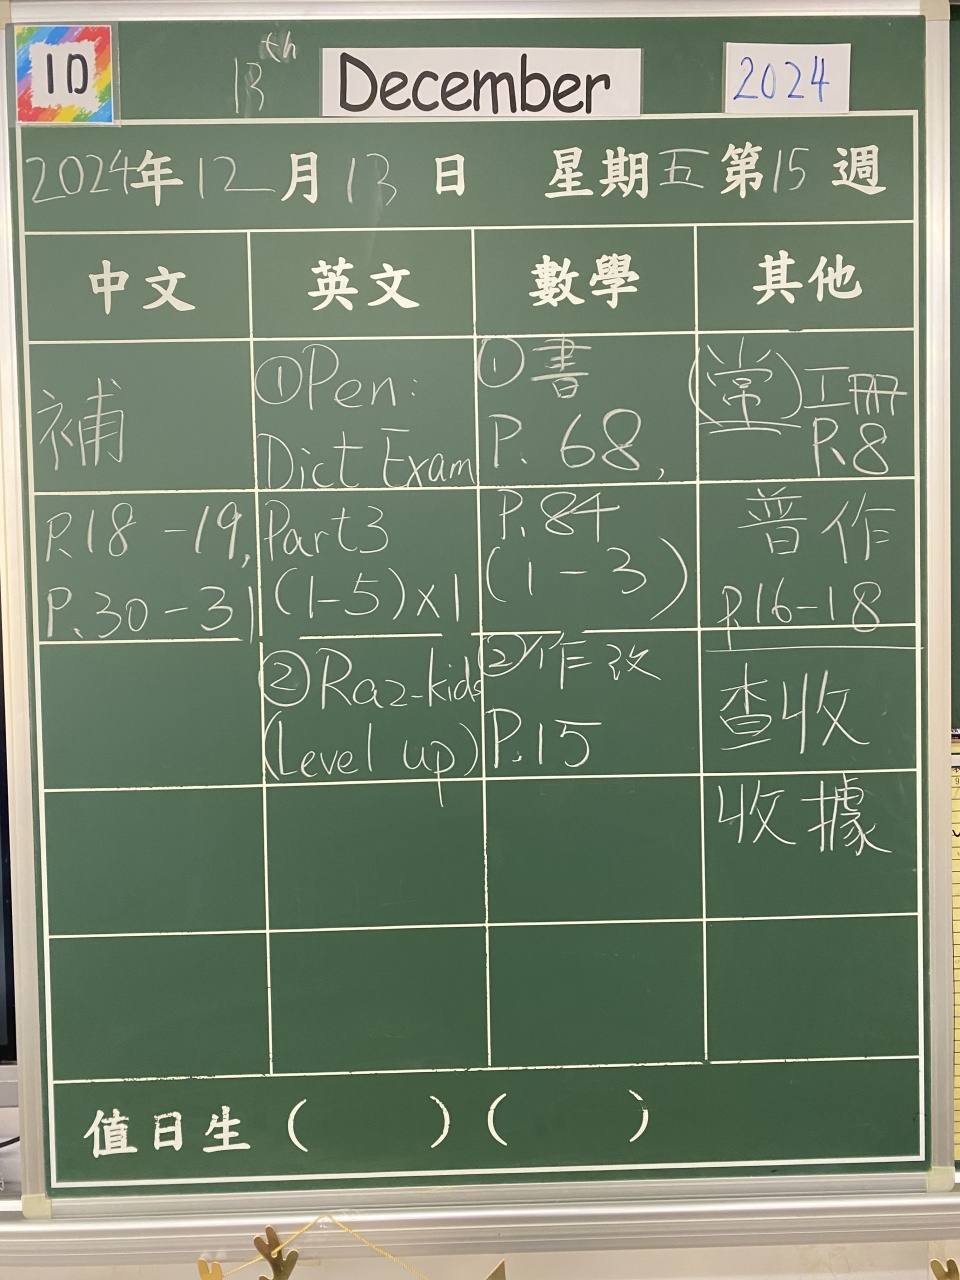 1D
13th December 2024
2024年12月13日 星期五第15週
中文
英文
數學
其他
補
P.18-19,
P.30-31
①Pen:
Dict Exam
Part3
(1-5)×1
②Raz-kids
(Level up)
①書
P. 68,
P.84
(1-3)
②作改
P.15
(常)工冊
P.8
普作
P.16-18
查收
收據
值日生 (      ) (      )